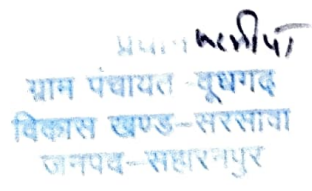 प्रधान
ग्राम पंचायत बूधगढ
विकास खण्ड-सरसावा
जनपद-सहारनपुर